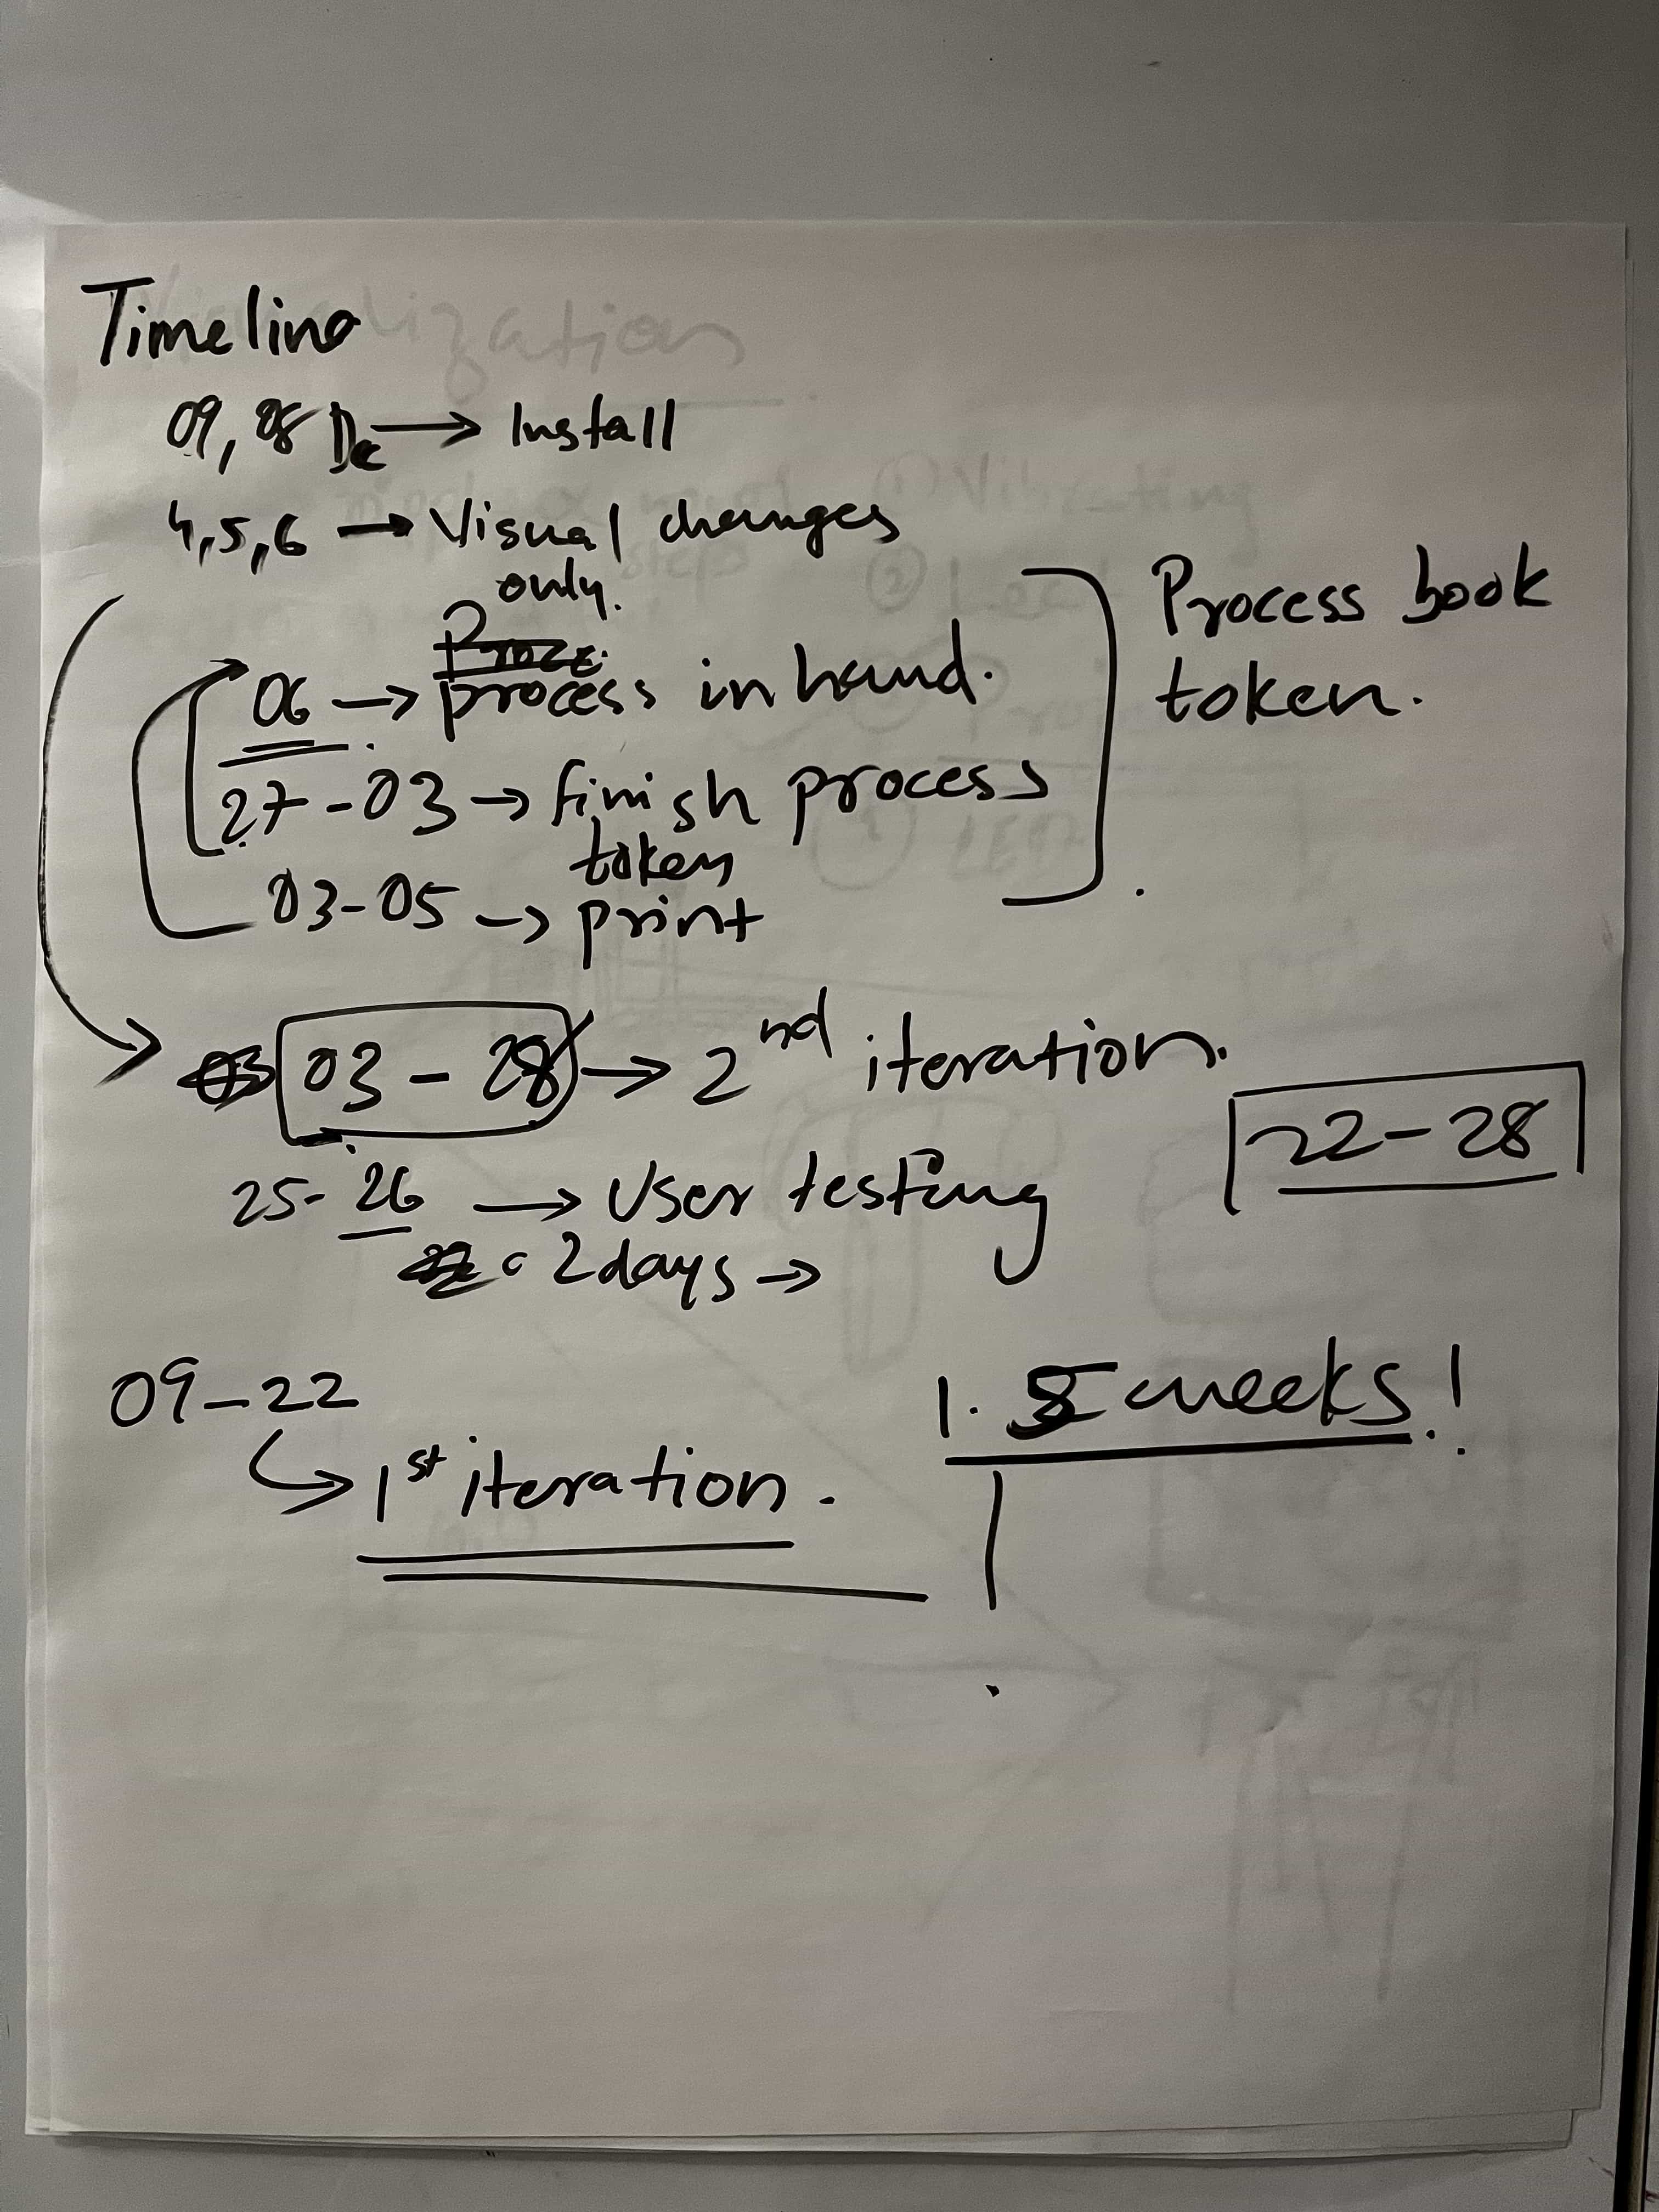 Timeline
09, 08 Dec → Install
4,5,6 → Visual changes
only.
06 → process in hand.
27-03 → finish process
token
03-05 → print
Process book
token.
03 - 28 → 2nd iteration.
22-28
25-26 → User testing
2 days →
09-22
1st iteration.
1.5 weeks!